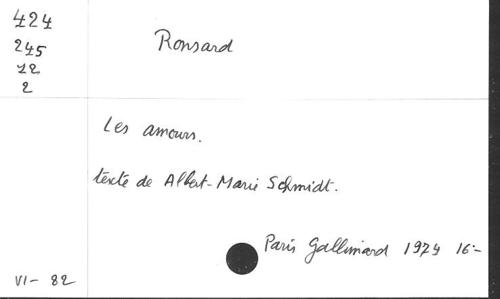 424
245
12
2
Ronsard
Les amours.
texte de Albert-Marie Schmidt.
Paris Gallimard 1974 16:-
VI- 82